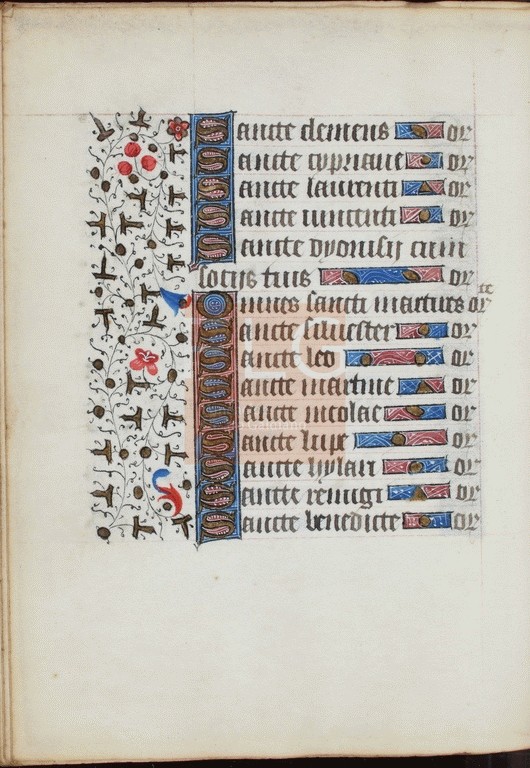 Sancte clemens or
Sancte cypriane or
Sancte laurenti or
Sancte vincenti or
Sancte dyonisij cum
socijs tuis or
Omnes sancti martires orate
Sancte silvester or
Sancte leo or
Sancte martine or
Sancte nicolae or
Sancte lupe or
Sancte hylari or
Sancte remigi or
Sancte benedicte or